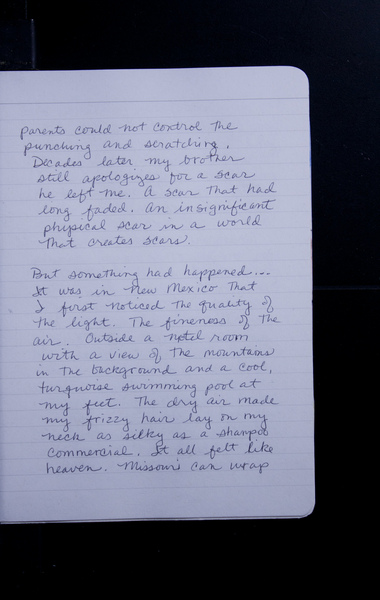 parents could not control the
punching and scratching.
Decades later my brother
still apologizes for a scar
he left me. A scar that had
long faded. An insignificant
physical scar in a world
that creates scars.
But something had happened...
It was in New Mexico that
I first noticed the quality of
the light. The fineness of the
air. Outside a motel room
with a view of the mountains
in the background and a cool,
turquoise swimming pool at
my feet. The dry air made
my frizzy hair lay on my
neck as silky as a shampoo
commercial. It all felt like
heaven. Missouri can wrap